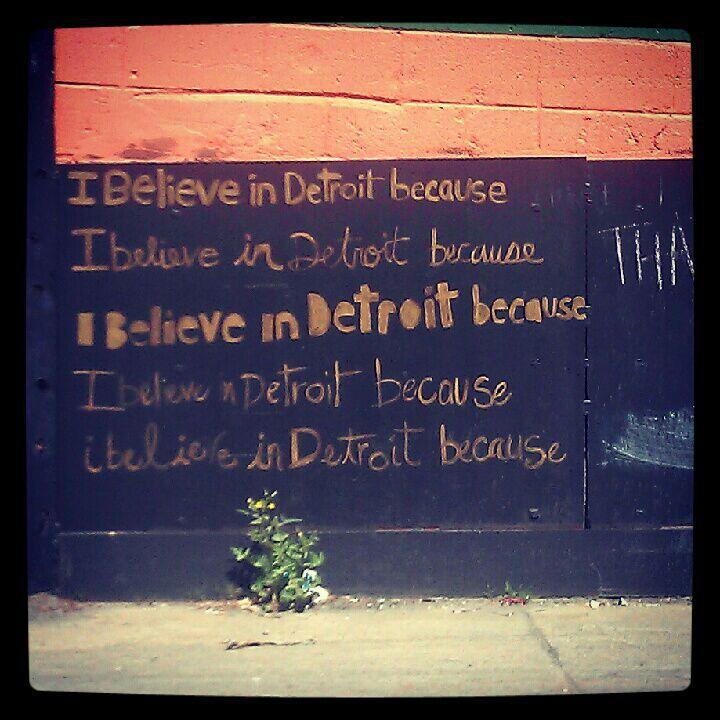 I Believe in Detroit because
I believe in Detroit because
I Believe in Detroit because
I believe n Detroit because
i believe in Detroit because
THA